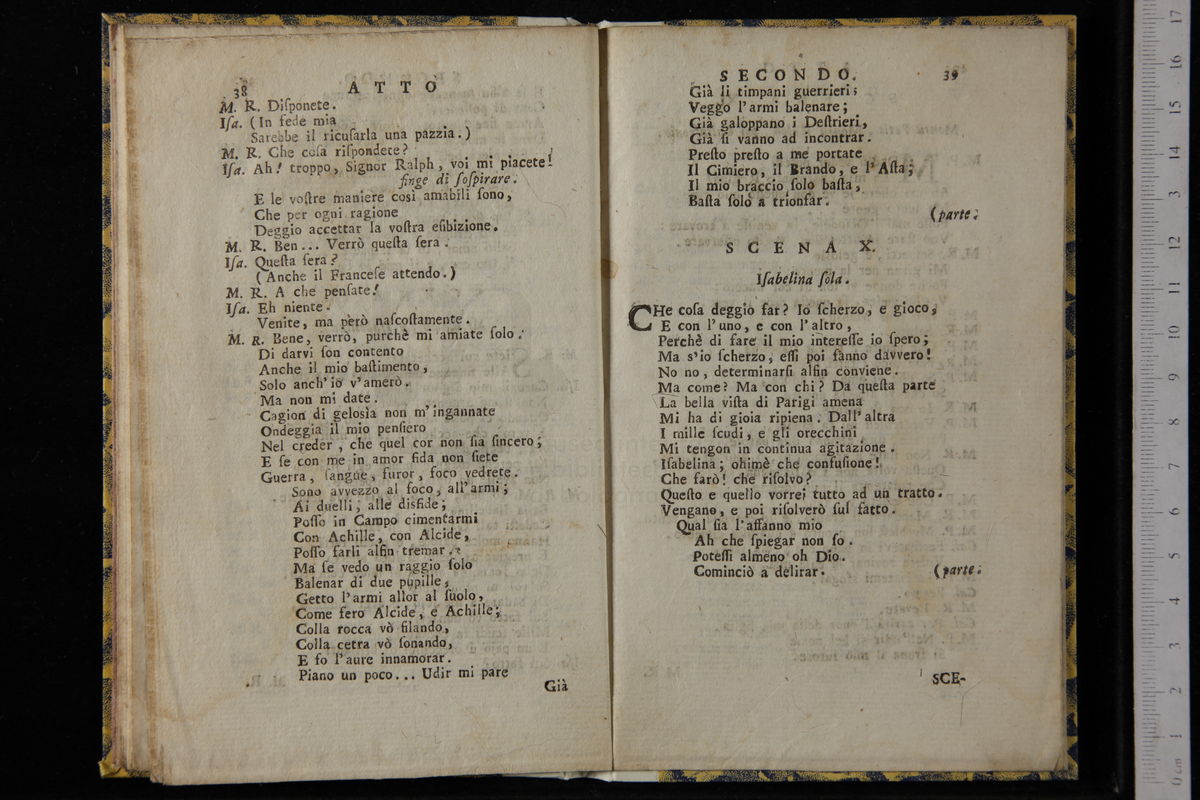 38 ATTO
M. R. Diſponete.
Iſa. (In fede mia
Sarebbe il ricuſarla una pazzia.)
M. R. Che coſa riſpondete?
Iſa. Ah! troppo, Signor Ralph, voi mi piacete!
finge di ſoſpirare.
E le voſtre maniere così amabili ſono,
Che per ogni ragione
Deggio accettar la voſtra eſibizione.
M. R. Ben... Verrò queſta ſera.
Iſa. Queſta ſera?
(Anche il Franceſe attendo.)
M. R. A che penſate!
Iſa. Eh niente.
Venite, ma però naſcoſtamente.
M. R. Bene, verrò, purchè mi amiate ſolo.
Di darvi ſon contento
Anche il mio baſtimento,
Solo anch'io v'amerò.
Ma non mi date.
Cagion di geloſia non m'ingannate
Ondeggia il mio penſiero
Nel creder, che quel cor non ſia ſincero;
E ſe con me in amor fida non ſiete
Guerra, ſangue, furor, foco vedrete.
Sono avvezzo al foco, all'armi;
Ai duelli, alle disfide;
Poſſo in Campo cimentarmi
Con Achille, con Alcide,
Poſſo farli alfin tremar.
Ma ſe vedo un raggio ſolo
Balenar di due pupille,
Getto l'armi allor al ſuolo,
Come fero Alcide, e Achille;
Colla rocca vò filando,
Colla cetra vò ſonando,
E fo l'aure innamorar.
Piano un poco... Udir mi pare
Già
SECONDO. 39
Già li timpani guerrieri;
Veggo l'armi balenare;
Già galoppano i Deſtrieri,
Già ſi vanno ad incontrar.
Preſto preſto a me portate
Il Cimiero, il Brando, e l'Aſta;
Il mio braccio ſolo baſta,
Baſta ſolo a trionfar.
(parte.
SCENA X.
Iſabelina ſola.
CHe coſa deggio far? Io ſcherzo, e gioco,
E con l'uno, e con l'altro,
Perchè di fare il mio intereſſe io ſpero;
Ma s'io ſcherzo, eſſi poi fanno davvero!
No no, determinarſi alfin conviene.
Ma come? Ma con chi? Da queſta parte
La bella viſta di Parigi amena
Mi ha di gioia ripiena. Dall'altra
I mille ſcudi, e gli orecchini
Mi tengon in continua agitazione.
Iſabelina; ohimè che confuſione!
Che farò! che riſolvo?
Queſto e quello vorrei tutto ad un tratto.
Vengano, e poi riſolverò ſul fatto.
Qual ſia l'affanno mio
Ah che ſpiegar non ſo.
Poteſſi almeno oh Dio.
Cominciò a delirar. (parte.
SCE-